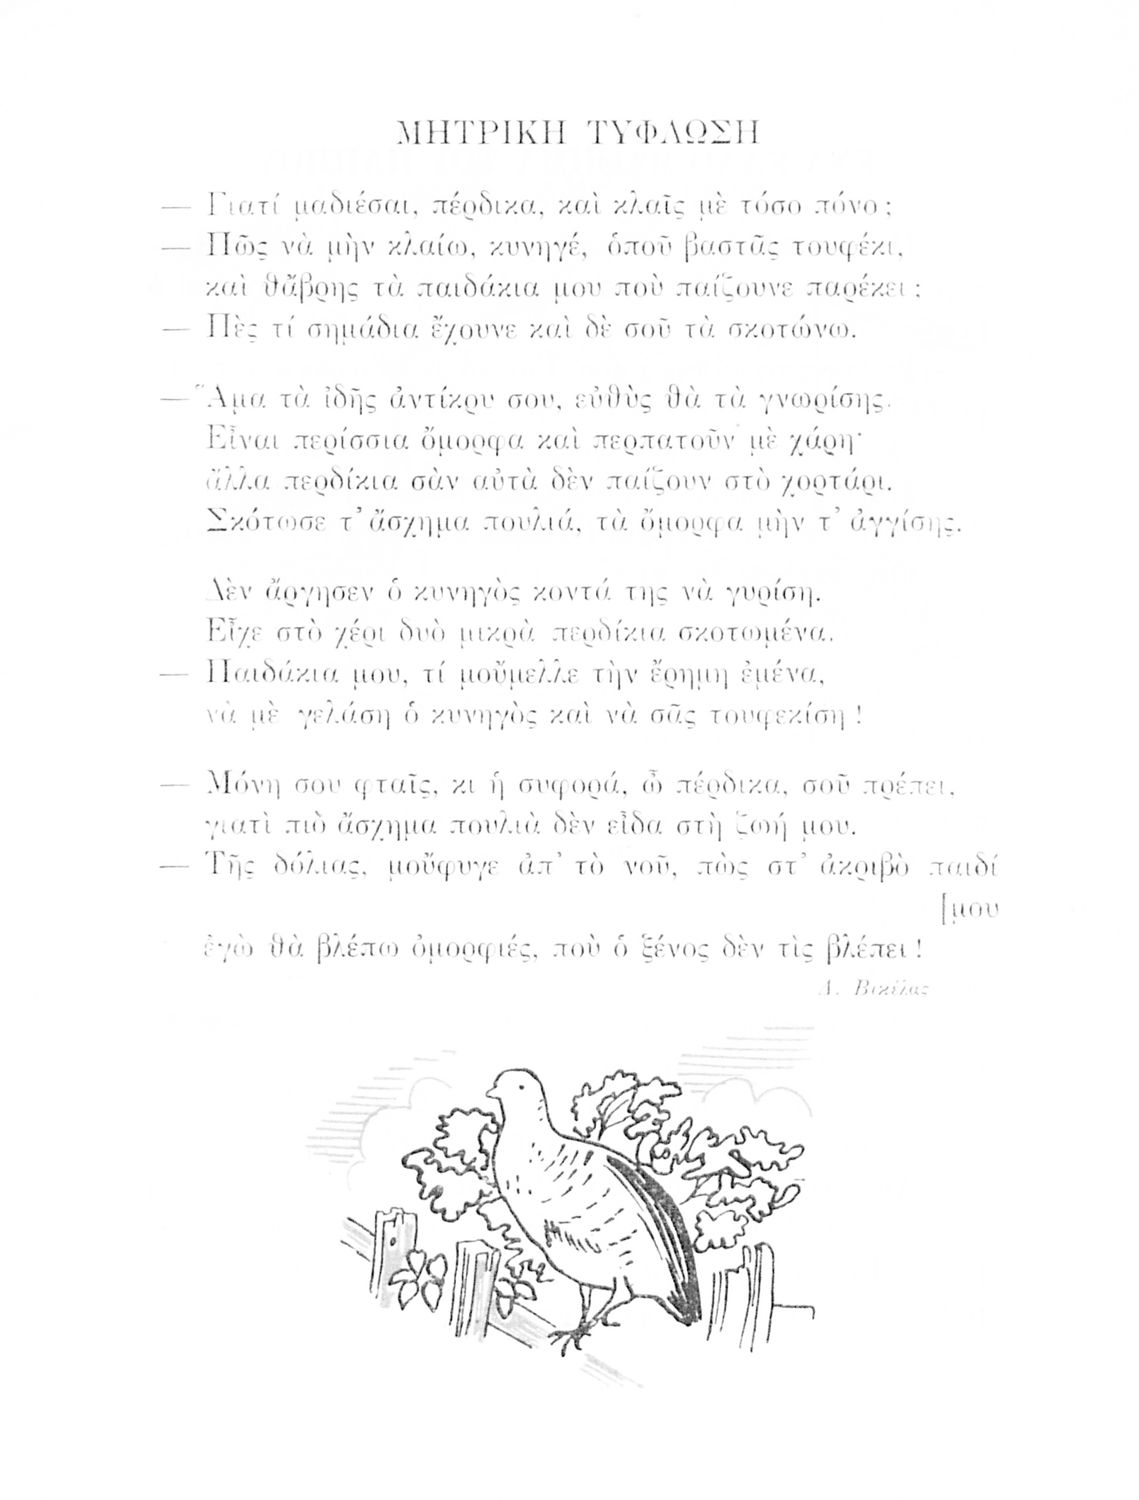 ΜΗΤΡΙΚΗ ΤΥΦΛΩΣΗ
— Γιατί μαδιέσαι, πέρδικα, καὶ κλαῖς μὲ τόσο πόνο;
— Πῶς νὰ μὴν κλαίω, κυνηγέ, ὁποῦ βαστᾶς τουφέκι,
καὶ θἄβρης τὰ παιδάκια μου ποὺ παίζουνε παρέκει;
— Πὲς τί σημάδια ἔχουνε καὶ δὲ σοῦ τὰ σκοτώνω.
— Ἅμα τὰ ἰδῆς ἀντίκρυ σου, εὐθὺς θὰ τὰ γνωρίσης.
Εἶναι περίσσια ὄμορφα καὶ περπατοῦν μὲ χάρη·
ἄλλα περδίκια σὰν αὐτὰ δὲν παίζουν στὸ χορτάρι.
Σκότωσε τ' ἄσχημα πουλιά, τὰ ὄμορφα μὴν τ' ἀγγίσης.
Δὲν ἄργησεν ὁ κυνηγὸς κοντά της νὰ γυρίση.
Εἶχε στὸ χέρι δυὸ μικρὰ περδίκια σκοτωμένα.
— Παιδάκια μου, τί μοὔμελλε τὴν ἔρημη ἐμένα,
νὰ μὲ γελάση ὁ κυνηγὸς καὶ νὰ σᾶς τουφεκίση!
— Μόνη σου φταῖς, κι ἡ συφορά, ὦ πέρδικα, σοῦ πρέπει,
γιατὶ πιὸ ἄσχημα πουλιὰ δὲν εἶδα στὴ ζωή μου.
— Τῆς δόλιας, μοὔφυγε ἀπ' τὸ νοῦ, πὼς στ' ἀκριβὸ παιδί
[μου
ἐγὼ θὰ βλέπω ὀμορφιές, ποὺ ὁ ξένος δὲν τὶς βλέπει!
Δ. Βικέλας